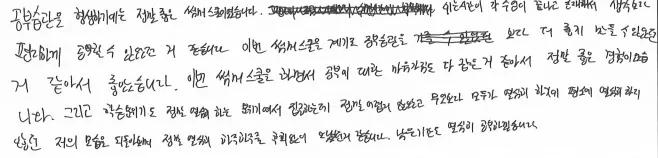 공부습관을 형성하기에는 정말 좋은 썸머스쿨이였습니다. 쉬는시간이 각 수업이 끝나고 존재해서 생각보다
편리하게 공부할 수 있었던 거 같습니다. 이번 썸머스쿨을 계기로 공부습관을 보다 더 좋게 만들 수 있었던
거 같아서 좋았습니다. 이번 썸머스쿨을 하면서 공부에 대한 마음가짐도 다 잡은 거 같아서 정말 좋은 경험이였습
니다. 그리고 학습분위기도 정말 열심히 하는 분위기여서 집중하는데 전혀 어렵지 않았고 무엇보다 모두가 열심히 하기에 평소에 열심히 하지
않았던 저의 모습을 되돌아보며 정말 열심히 하루하루를 보냈던거 같습니다. 남은기간도 열심히 공부하겠습니다.